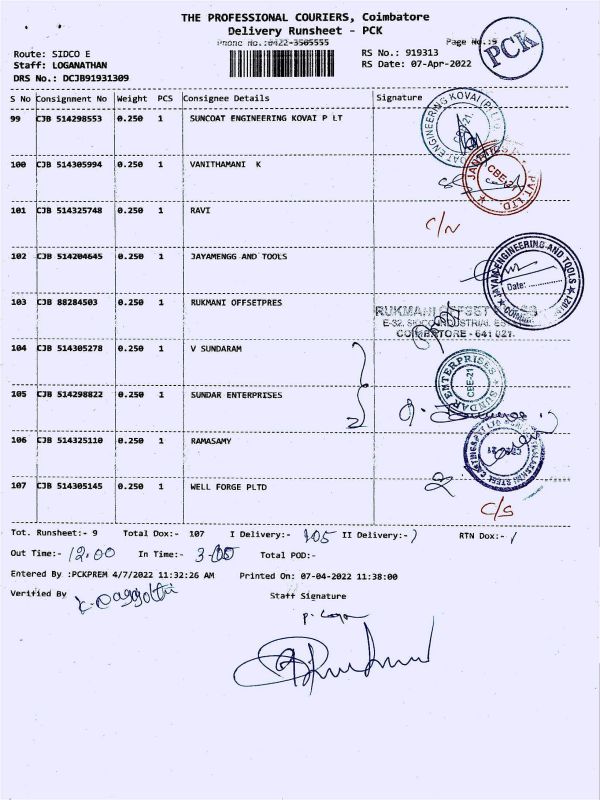 THE PROFESSIONAL COURIERS, Coimbatore
Delivery Runsheet - PCK
Phone No.:0422-3505555
Page No.:9
PCK
Route: SIDCO E
Staff: LOGANATHAN
DRS No.: DCJB91931309
RS No.: 919313
RS Date: 07-Apr-2022
S No Consignment No Weight PCS Consignee Details Signature
99 CJB 514298553 0.250 1 SUNCOAT ENGINEERING KOVAI P LT
100 CJB 514305994 0.250 1 VANITHAMANI K
101 CJB 514325748 0.250 1 RAVI C/N
102 CJB 514204645 0.250 1 JAYAMENGG AND TOOLS
JAYAM ENGINEERING AND TOOLS
Date:
103 CJB 88284503 0.250 1 RUKMANI OFFSETPRES
RUKMANI OFFSET
E-32, SIDCO INDUSTRIAL ES
COIMBATORE - 641 021.
104 CJB 514305278 0.250 1 V SUNDARAM
SUNDAR ENTERPRISES
CBE-21
105 CJB 514298822 0.250 1 SUNDAR ENTERPRISES
106 CJB 514325110 0.250 1 RAMASAMY
107 CJB 514305145 0.250 1 WELL FORGE PLTD
C/S
Tot. Runsheet:- 9 Total Dox:- 107 I Delivery:- 105 II Delivery:- RTN Dox:-
Out Time:- 12.00 In Time:- 3-00 Total POD:-
Entered By :PCKPREM 4/7/2022 11:32:26 AM Printed On: 07-04-2022 11:38:00
Verified By Staff Signature